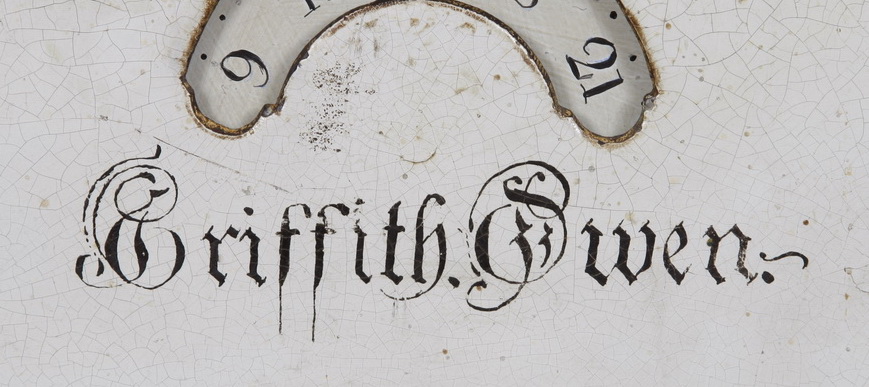 9 21
Griffith. Owen.